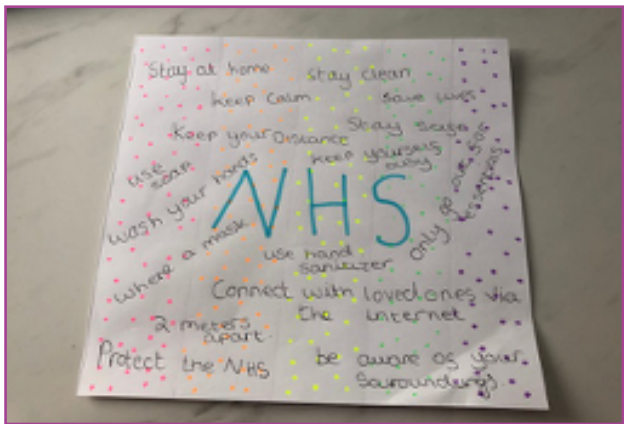 Stay at home
Stay clean
Keep Calm
Save lives
Keep your Distance
Stay safe
use
soap
keep yourself
busy
wash your hands
NHS
only go out for
essentials
where a mask
use hand
sanitizer
Connect with loved ones via
the internet
2 meters
apart.
Protect the NHS
be aware of your
sarroundings